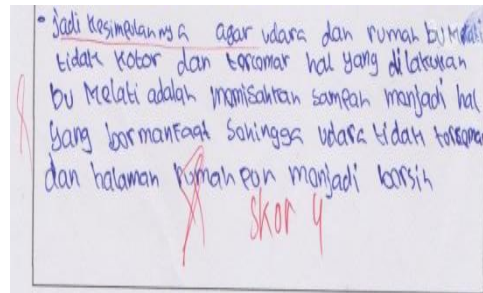 • Jadi kesimpulannya agar udara dan rumah bu Melati
tidak kotor dan tercemar hal yang dilakukan
bu Melati adalah memisahkan sampah menjadi hal
yang bermanfaat sehingga udara tidak tercemar
dan halaman rumah pun menjadi bersih
skor 4